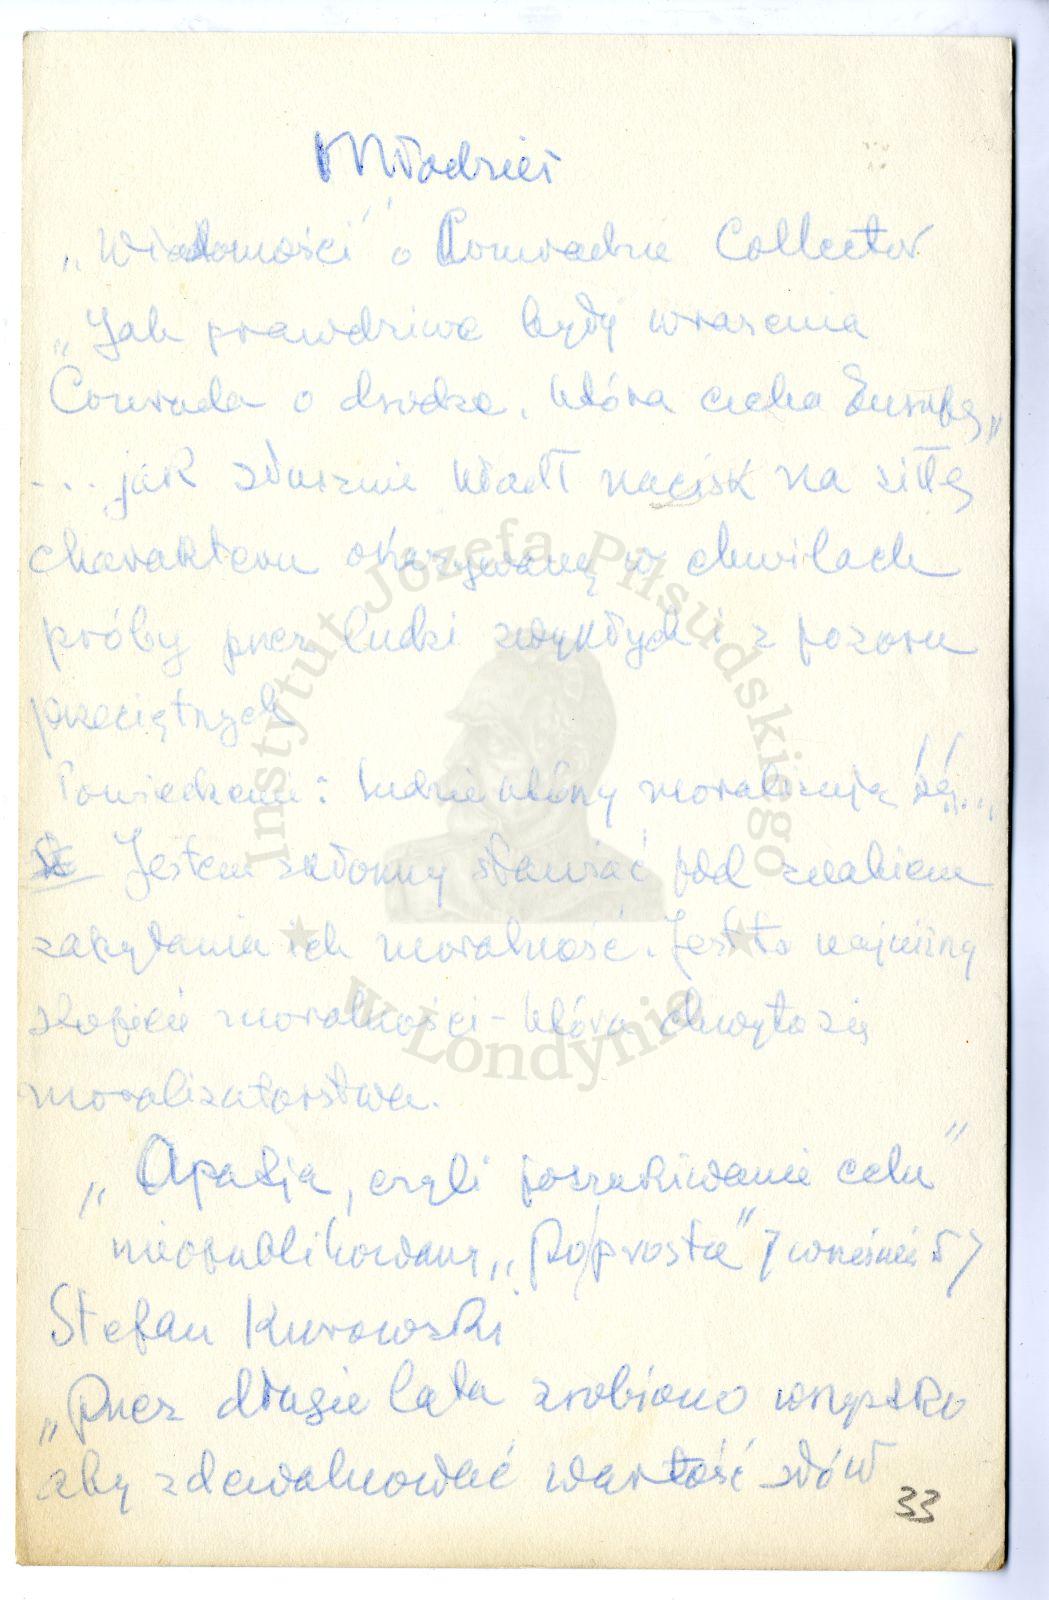 Młodzież
„Wiadomości" o Conradzie Collector
„Jak prawdziwe były wrażenia
Conrada o drodze, która czeka Europę"
... jak słusznie kładł nacisk na siłę
charakteru okazywaną w chwilach
próby przez ludzi zwykłych i z pozoru
przeciętnych
Powiedzenie: ludzie którzy moralizują są...
Jestem skłonny stawiać pod znakiem
zapytania ich moralność. Jest to najniższy
stopień moralności - która chwyta się
moralizatorstwa.
„Apatja, czyli poszukiwanie celu"
nieopublikowany „Poprostu" 7 wrzesień 57
Stefan Kurowski
„Przez długie lata zrobiono wszystko
aby zdewaluować wartość słów
33
Instytut Józefa Piłsudskiego
w Londynie